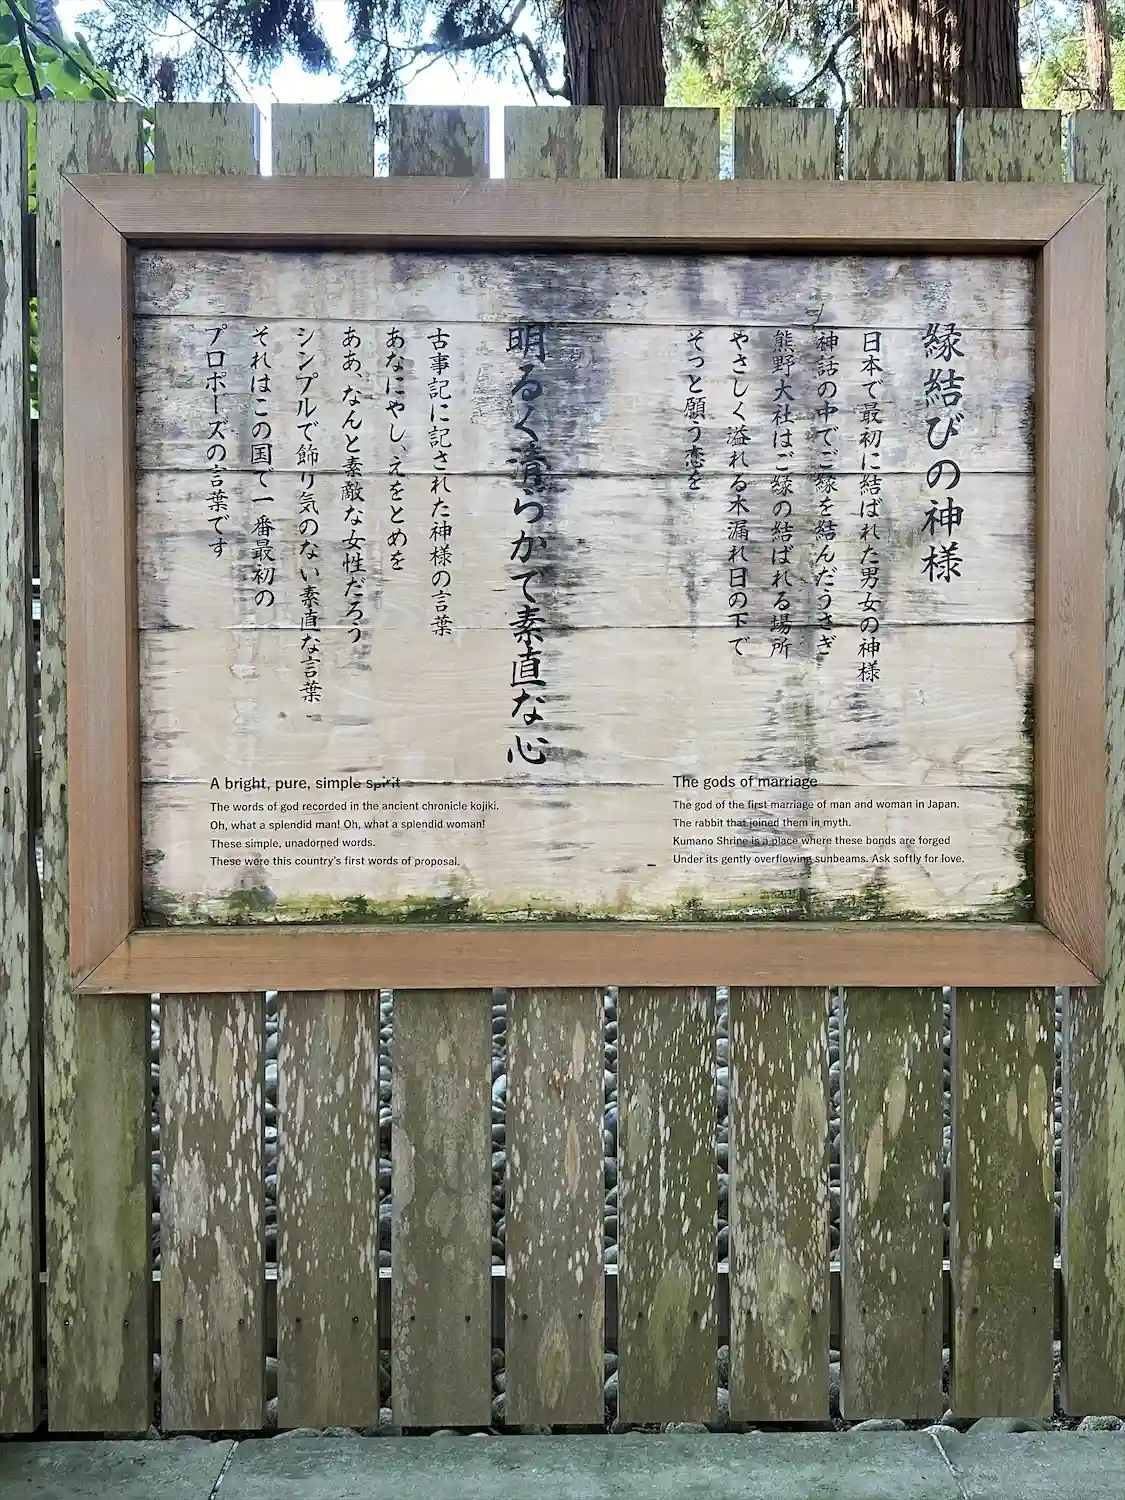 縁結びの神様
日本で最初に結ばれた男女の神様
神話の中でご縁を結んだうさぎ
熊野大社はご縁の結ばれる場所
やさしく溢れる木漏れ日の下で
そっと願う恋を
明るく清らかで素直な心
古事記に記された神様の言葉
あなにやし、えをとめを
ああ、なんと素敵な女性だろう
シンプルで飾り気のない素直な言葉
それはこの国で一番最初の
プロポーズの言葉です
A bright, pure, simple spirit
The words of god recorded in the ancient chronicle kojiki.
Oh, what a splendid man! Oh, what a splendid woman!
These simple, unadorned words.
These were this country's first words of proposal.
The gods of marriage
The god of the first marriage of man and woman in Japan.
The rabbit that joined them in myth.
Kumano Shrine is a place where these bonds are forged
Under its gently overflowing sunbeams. Ask softly for love.